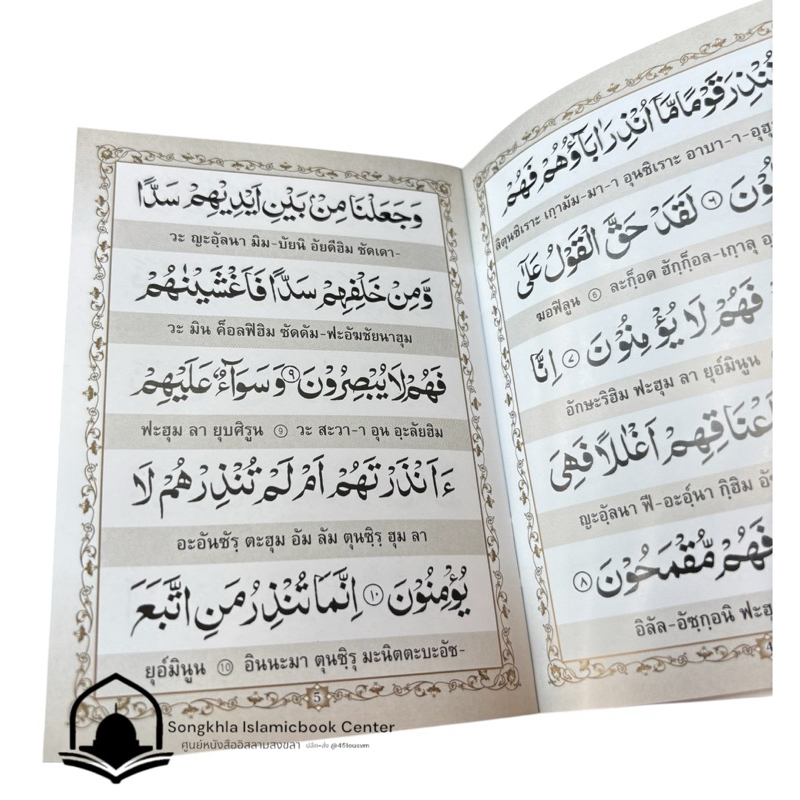 نُنْذِرَ قَوْمًا مَّآ اُنْذِرَ اٰبَآؤُهُمْ فَهُمْ
ลิตุนซิเราะ เกฺามัม-มา-า อุนซิเราะ อาบา-า-อุฮุ
۶ لَقَدْ حَقَّ الْقَوْلُ عَلٰٓى
ฆอฟิลูน ⑥ ละก็อด ฮักก็อล-เกฺาลุ
فَهُمْ لَا يُؤْمِنُوْنَ ۷ اِنَّا
อักษะริฮิม ฟะฮุม ลา ยุอ์มินูน
اَعْنَاقِهِمْ اَغْلٰلًا فَهِىَ
ญะอัลนา ฟี-อะอฺนา กิฮิม
فَهُمْ مُّقْمَحُوْنَ ۸
อิลัล-อัซกอนิ
4
وَجَعَلْنَا مِنْۢ بَيْنِ اَيْدِيْهِمْ سَدًّا
วะ ญะอัลนา มิม-บัยนิ อัยดีฮิม ซัดเดา-
وَّمِنْ خَلْفِهِمْ سَدًّا فَاَغْشَيْنٰهُمْ
วะ มิน ค็อลฟิฮิม ซัดดัม-ฟะอัฆชัยนาฮุม
فَهُمْ لَا يُبْصِرُوْنَ ۹ وَسَوَآءٌ عَلَيْهِمْ
ฟะฮุม ลา ยุบศิรูน ⑨ วะ สะวา-า อุน อะลัยฮิม
ءَاَنْذَرْتَهُمْ اَمْ لَمْ تُنْذِرْهُمْ لَا
อะอันซัรฺ ตะฮุม อัม ลัม ตุนซิรฺ ฮุม ลา
يُؤْمِنُوْنَ ۱۰ اِنَّمَا تُنْذِرُ مَنِ اتَّبَعَ
ยุอ์มินูน ⑩ อินนะมา ตุนซิรุ มะนิตตะบะอัซ-
5
Songkhla Islamicbook Center
ศูนย์หนังสืออิสลามสงขลา